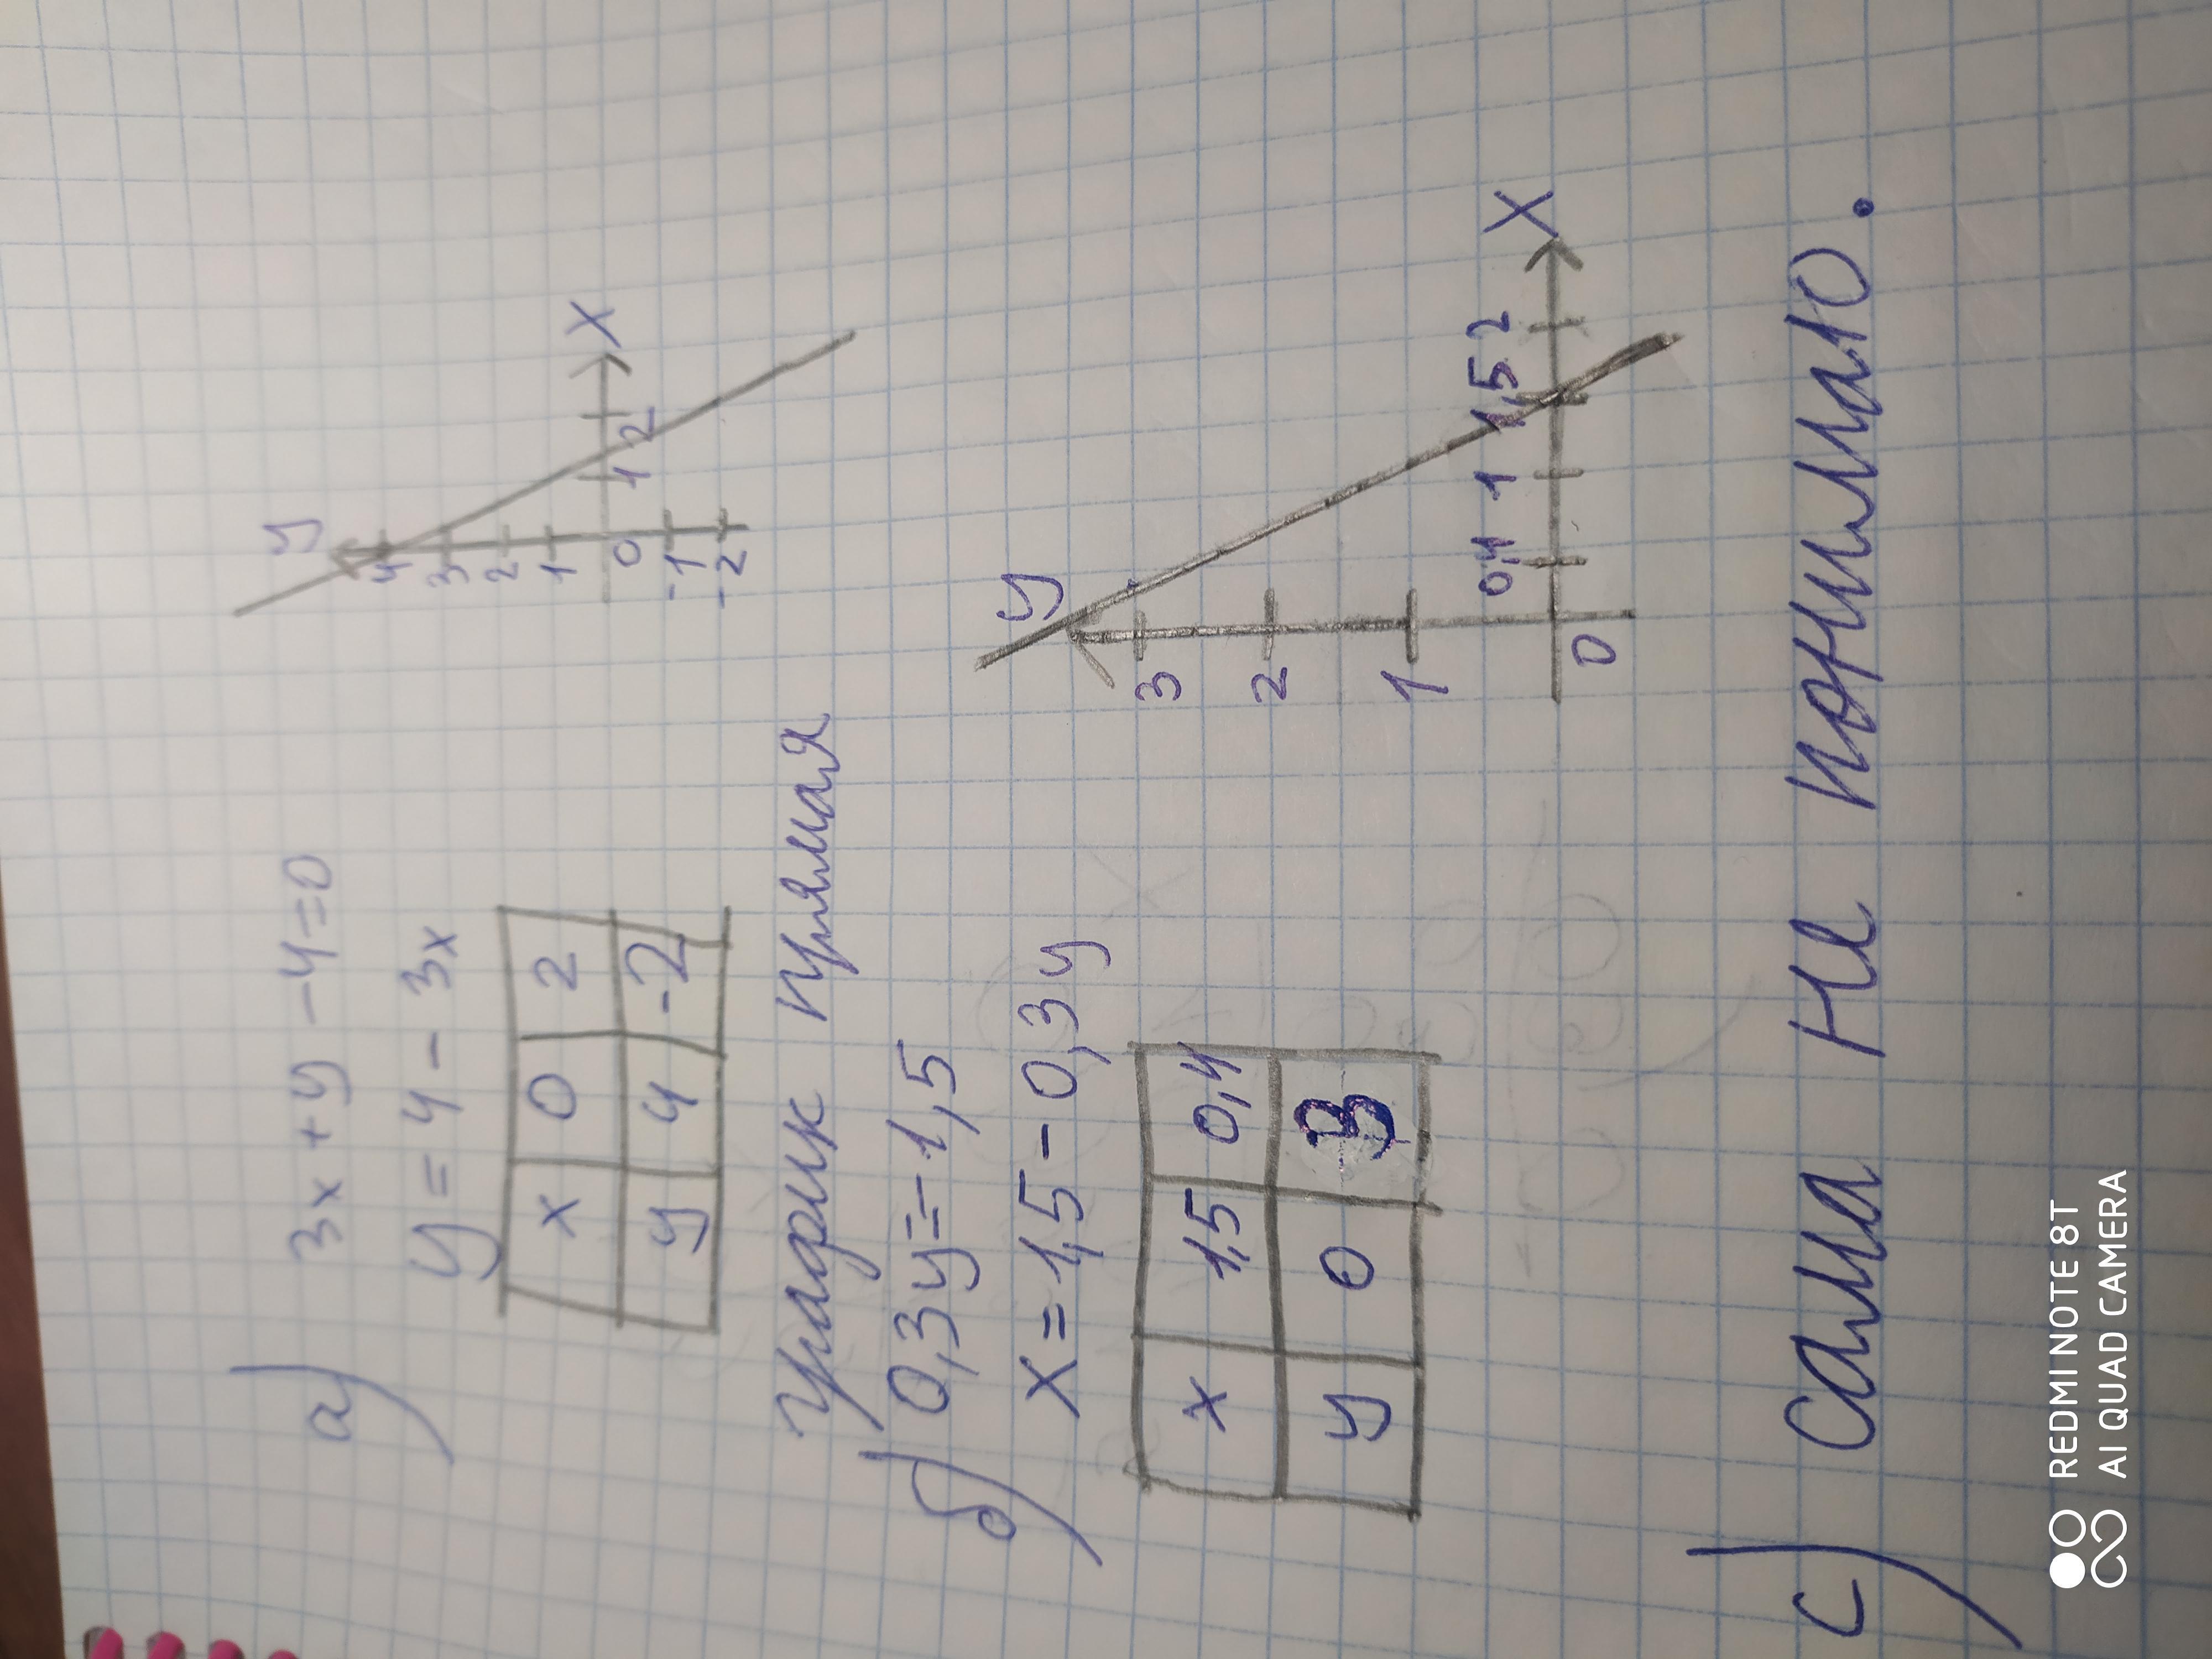 а) 3x+y-4=0
y=4-3x
x 0 2
y 4 -2
y
4
3
2
1
0
-1
-2
1 2
X
График прямая
б) 0,3y=-1,5
X=1,5-0,3y
x 1,5 0,4
y 0 3
y
3
2
1
0
0,4 1 1,5 2
X
с) Сама не понимаю.
REDMI NOTE 8T
AI QUAD CAMERA